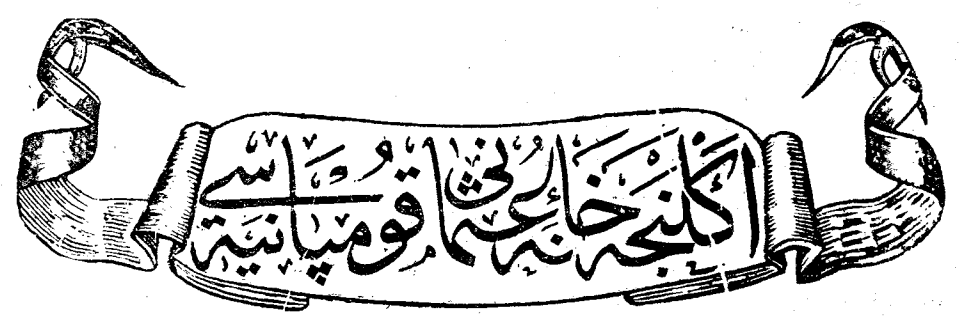 اكلنجه خانهٔ عثمانی قومپانیه‌سی